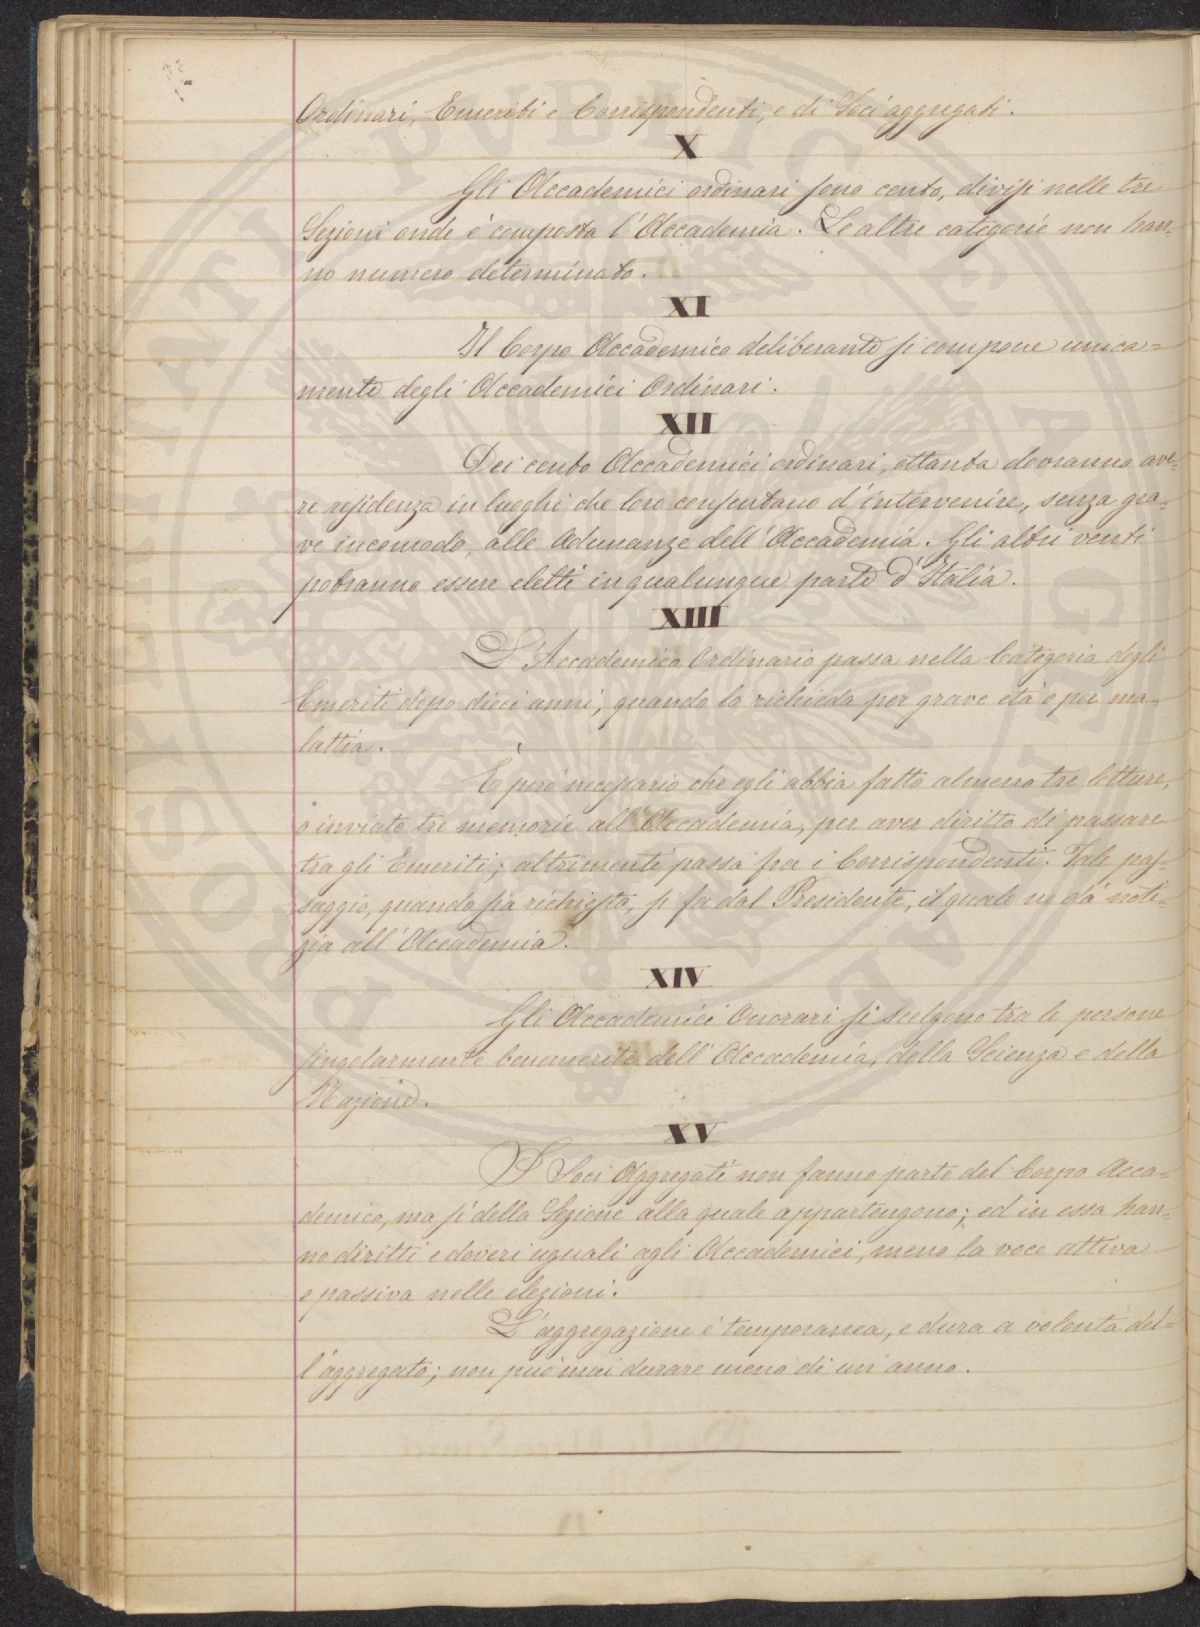 Ordinari, Emeriti e Corrispondenti, e di Soci aggregati.
X
Gli Accademici ordinari sono cento, divisi nelle tre
Sezioni onde è composta l'Accademia. Le altre categorie non han-
no numero determinato.
XI
Il Corpo Accademico deliberante si compone unica=
mente degli Accademici Ordinari.
XII
Dei cento Accademici ordinari, ottanta dovranno ave-
re residenza in luoghi che loro consentano d'intervenire, senza gra-
ve incomodo, alle Adunanze dell'Accademia. Gli altri venti
potranno essere eletti in qualunque parte d'Italia.
XIII
L'Accademico Ordinario passa nella Categoria degli
Emeriti dopo dieci anni, quando lo richieda per grave età o per ma-
lattia.
È però necessario che egli abbia fatto almeno tre letture,
o inviato tre memorie all'Accademia, per aver diritto di passare
tra gli Emeriti; altrimenti passa fra i Corrispondenti. Tale pas-
saggio, quando sia richiesto, si fa dal Presidente, il quale ne dà noti-
zia all'Accademia.
XIV
Gli Accademici Onorari si scelgono tra le persone
singolarmente benemerite dell'Accademia, della Scienza e della
Nazione.
XV
I Soci Aggregati non fanno parte del Corpo Acca=
demico, ma sì della Sezione alla quale appartengono; ed in essa han=
no diritti e doveri uguali agli Accademici, meno la voce attiva
e passiva nelle elezioni.
L'aggregazione è temporanea, e dura a volontà del=
l'aggregato; non può mai durare meno di un'anno.